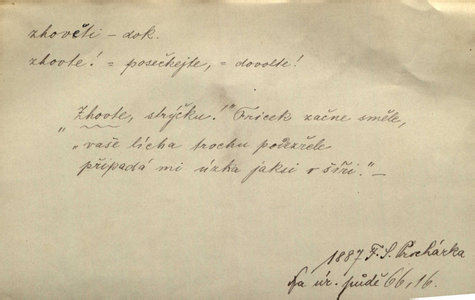 zhověti – dok.
zhovte! = posečkejte, = dovolte!
„Zhovte, strýčku!" Fricek začne směle,
„vaše lícha trochu podezřele
připadá mi úzka jaksi v šíři." –
1887 F. S. Procházka
Na úr. půdě 66, 16.